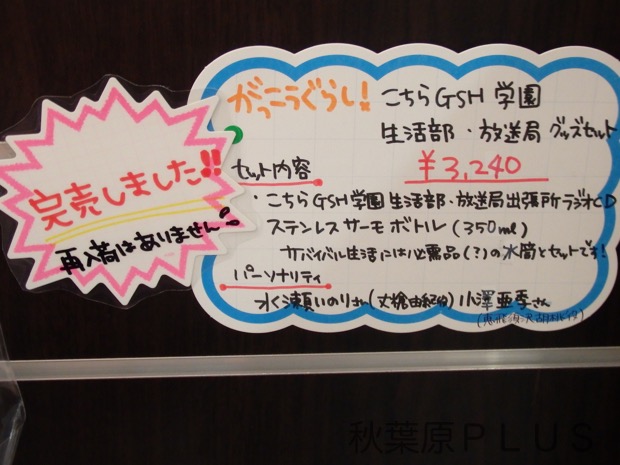 完売しました!!
再入荷はありません。
がっこうぐらし! こちらGSH学園
生活部・放送局 グッズセット
セット内容
¥3,240
・こちらGSH学園生活部・放送局出張所ラジオCD
ステンレスサーモボトル(350ml)
サバイバル生活には必需品(?)の水筒とセットです!
パーソナリティ
水瀬いのりさん(丈槍由紀役)小澤亜李さん
(恵飛須沢胡桃役)
秋葉原PLUS